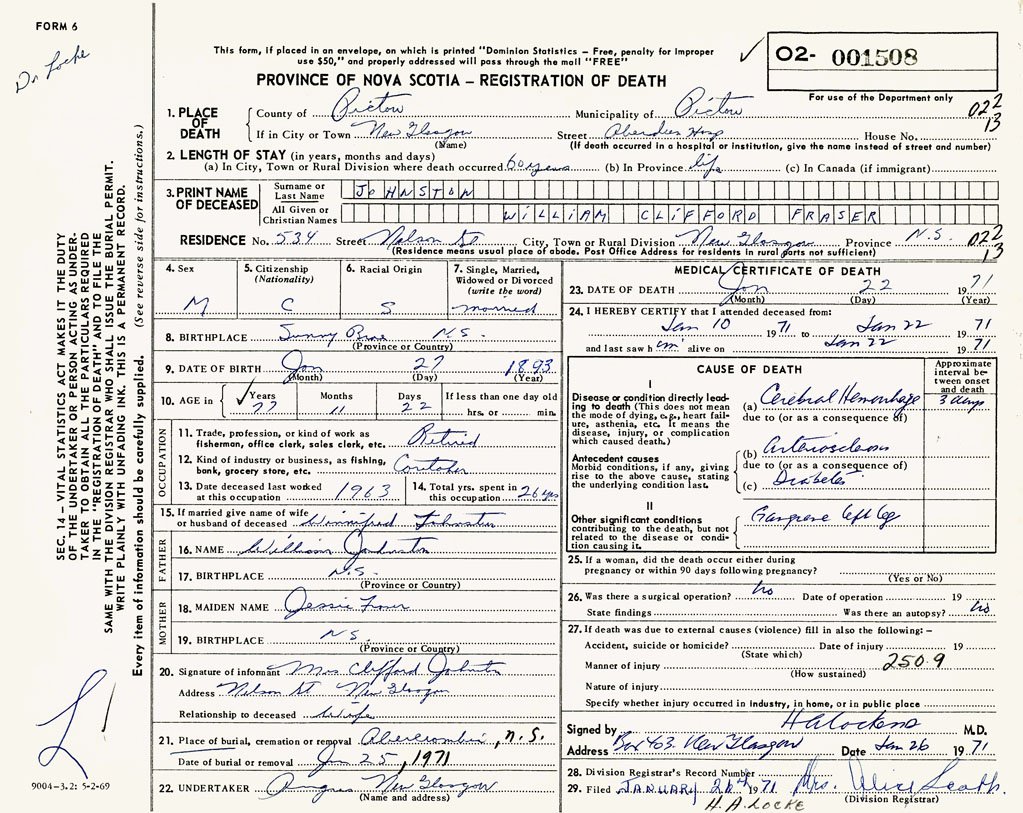 FORM 6
Dr Locke
This form, if placed in an envelope, on which is printed "Dominion Statistics – Free, penalty for improper
use $50," and properly addressed will pass through the mail "FREE"
PROVINCE OF NOVA SCOTIA – REGISTRATION OF DEATH
O2- 001508
For use of the Department only
022
13
1. PLACE OF DEATH
County of Pictou Municipality of Pictou
If in City or Town New Glasgow Street Aberdeen Hosp House No.
(Name) (If death occurred in a hospital or institution, give the name instead of street and number)
2. LENGTH OF STAY (in years, months and days)
(a) In City, Town or Rural Division where death occurred 60 years (b) In Province life (c) In Canada (if immigrant)
3. PRINT NAME OF DECEASED
Surname or Last Name JOHNSTON
All Given or Christian Names WILLIAM CLIFFORD FRASER
RESIDENCE No. 534 Street Nelson St City, Town or Rural Division New Glasgow Province N.S.
022
13
(Residence means usual place of abode. Post Office Address for residents in rural parts not sufficient)
4. Sex M
5. Citizenship (Nationality) C
6. Racial Origin S
7. Single, Married, Widowed or Divorced (write the word) married
8. BIRTHPLACE Sunny Brae N.S.
(Province or Country)
9. DATE OF BIRTH Jan 27 1893
(Month) (Day) (Year)
10. AGE in Years Months Days If less than one day old
77 11 22 hrs. or min.
OCCUPATION
11. Trade, profession, or kind of work as fisherman, office clerk, sales clerk, etc. Retired
12. Kind of industry or business, as fishing, bank, grocery store, etc.
13. Date deceased last worked at this occupation 1963
14. Total yrs. spent in this occupation 26 yrs
15. If married give name of wife or husband of deceased Winnifred Johnston
FATHER
16. NAME William Johnston
17. BIRTHPLACE N.S.
(Province or Country)
MOTHER
18. MAIDEN NAME Jessie
19. BIRTHPLACE N.S.
(Province or Country)
20. Signature of informant Mrs Clifford Johnston
Address Nelson St New Glasgow
Relationship to deceased Wife
21. Place of burial, cremation or removal Abercrombie, N.S.
Date of burial or removal Jan 25, 1971
22. UNDERTAKER Angus New Glasgow
(Name and address)
MEDICAL CERTIFICATE OF DEATH
23. DATE OF DEATH Jan 22 1971
(Month) (Day) (Year)
24. I HEREBY CERTIFY that I attended deceased from:
Jan 10 1971 to Jan 22 1971
and last saw him alive on Jan 22 1971
CAUSE OF DEATH
Approximate interval between onset and death
I
Disease or condition directly leading to death (This does not mean the mode of dying, e.g., heart failure, asthenia, etc. It means the disease, injury, or complication which caused death.)
(a) Cerebral Hemorrhage 3 days
due to (or as a consequence of)
Antecedent causes
Morbid conditions, if any, giving rise to the above cause, stating the underlying condition last.
(b) Arteriosclerosis
due to (or as a consequence of)
(c) Diabetes
II
Other significant conditions contributing to the death, but not related to the disease or condition causing it.
Gangrene left leg
25. If a woman, did the death occur either during pregnancy or within 90 days following pregnancy?
(Yes or No)
26. Was there a surgical operation? No Date of operation 19
State findings Was there an autopsy? No
27. If death was due to external causes (violence) fill in also the following: –
Accident, suicide or homicide? Date of injury 19
(State which)
Manner of injury 250.9
(How sustained)
Nature of injury
Specify whether injury occurred in industry, in home, or in public place
Signed by M.D.
Address Box 403 New Glasgow Date Jan 26 1971
28. Division Registrar's Record Number
29. Filed JANUARY 26th 1971 Mrs. Alice
(Division Registrar)
H. A. LOCKE
SEC. 14 – VITAL STATISTICS ACT MAKES IT THE DUTY
OF THE UNDERTAKER OR PERSON ACTING AS UNDER-
TAKER TO OBTAIN ALL THE PARTICULARS REQUIRED
IN THE "REGISTRATION OF DEATH" AND TO FILE THE
SAME WITH THE DIVISION REGISTRAR WHO SHALL ISSUE THE BURIAL PERMIT.
WRITE PLAINLY WITH UNFADING INK. THIS IS A PERMANENT RECORD.
Every item of information should be carefully supplied. (See reverse side for instructions.)
9004-3.2: 5-2-69